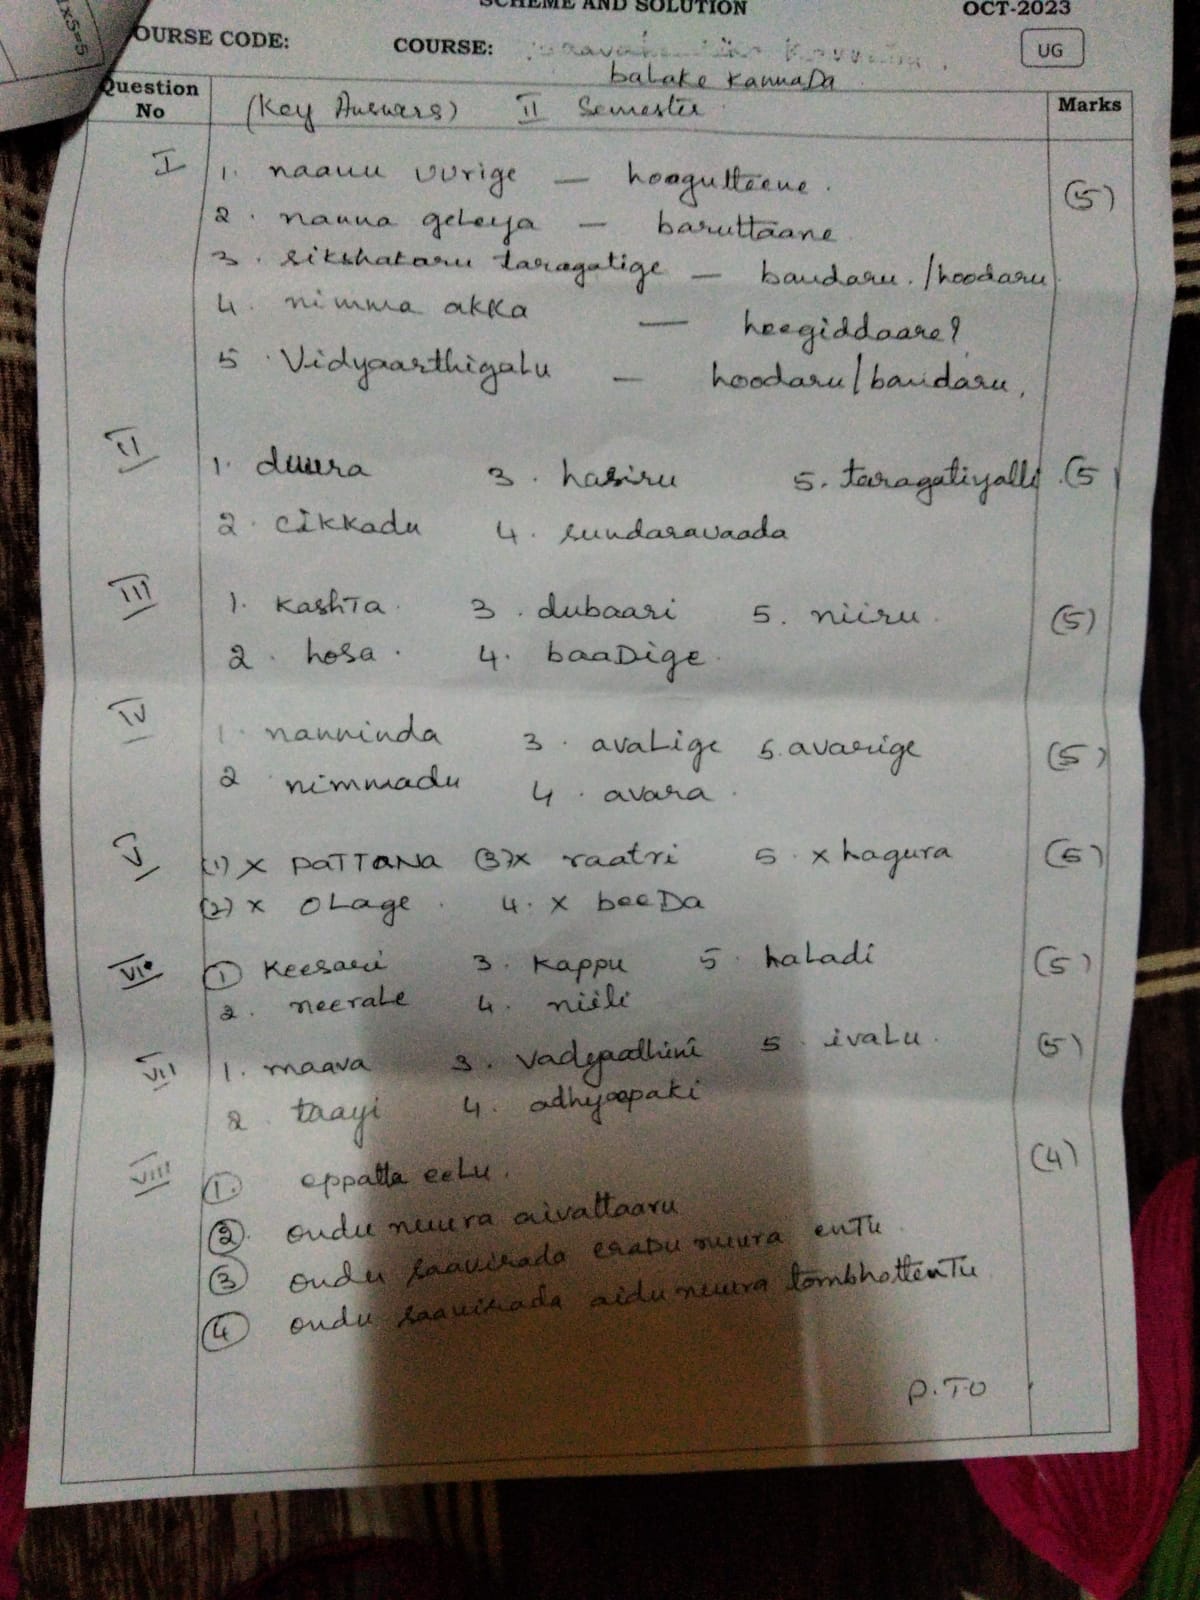 SCHEME AND SOLUTION OCT-2023
OURSE CODE: COURSE: UG
balake KannaDa
Question No (Key Answers) II Semester Marks
I 1. naanu uurige — hoogutteene. (5)
2. nanna geLeya — baruttaane
3. sikshakaru taragatige — bandaru./hoodaru
4. nimma akka — heegiddaare?
5 Vidyaarthigalu — hoodaru/bandaru.
II 1. duura 3. hasiru 5. taragatiyalli (5
2. cikkadu 4. sundaravaada
III 1. KashTa. 3. dubaari 5. niiru. (5)
2. hosa. 4. baaDige.
IV 1. nanninda 3. avaLige 5. avarige (5)
2 nimmadu 4. avara.
V (1) x paTTaNa (3) x raatri 5. x hagura (5)
(2) x oLage. 4. x beeDa
VI 1 Keesari 3. Kappu 5. haLadi (5)
2. neeraLe 4. niili
VII 1. maava 3. 5. ivaLu. (5)
2. taayi 4. adhyaapaki
VIII 1. eppatta eeLu. (4)
2. ondu nuura aivattaaru
3 ondu saavirada eraDu nuura enTu
4 ondu saavirada aidu nuura tombhattenTu
P.T.O
1x5=5